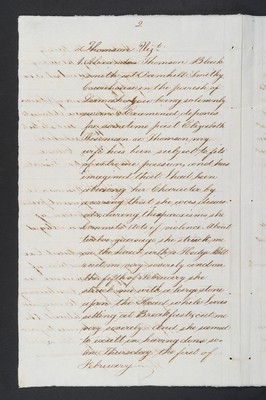 2
Thomson Black
smith at Damhill
in the parish of
being solemnly
sworn & examined depones
for some time past Elizabeth
or Thomson, my
wife has been subject to fits
of extreme passion, and has
imagined that I had been
injuring her Character by
saying that she was
during the paroxisms she
commits acts of violence. About
twelve years ago she struck me
on the head with a Hedge Bill
cutting very severely and on
the fifth of February she
struck me with a large stone
upon the Head while I was
sitting at Breakfast, cut me
very severely. And she seemed
to exult in having done so
on Thursday the first of
February